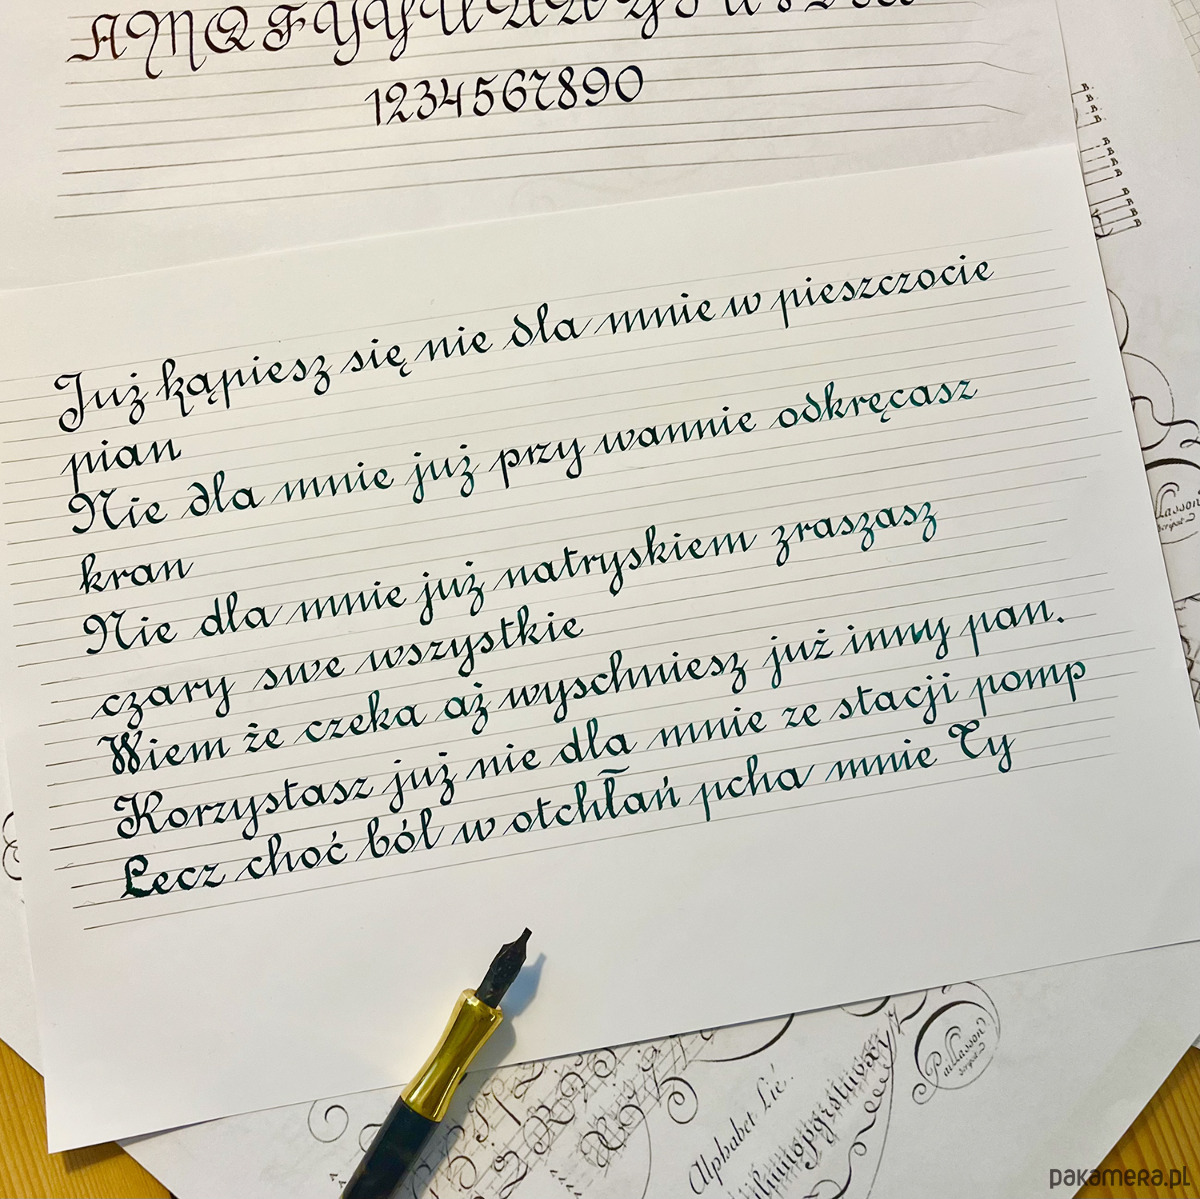 1234567890
Już kąpiesz się nie dla mnie w pieszczocie
pian
Nie dla mnie już przy wannie odkręcasz
kran
Nie dla mnie już natryskiem zraszasz
czary swe wszystkie
Wiem że czeka aż wyschniesz już inny pan.
Korzystasz już nie dla mnie ze stacji pomp
Lecz choć ból w otchłań pcha mnie Ty
Paillasson
Scripsit
Alphabet Lié..
pakamera.pl